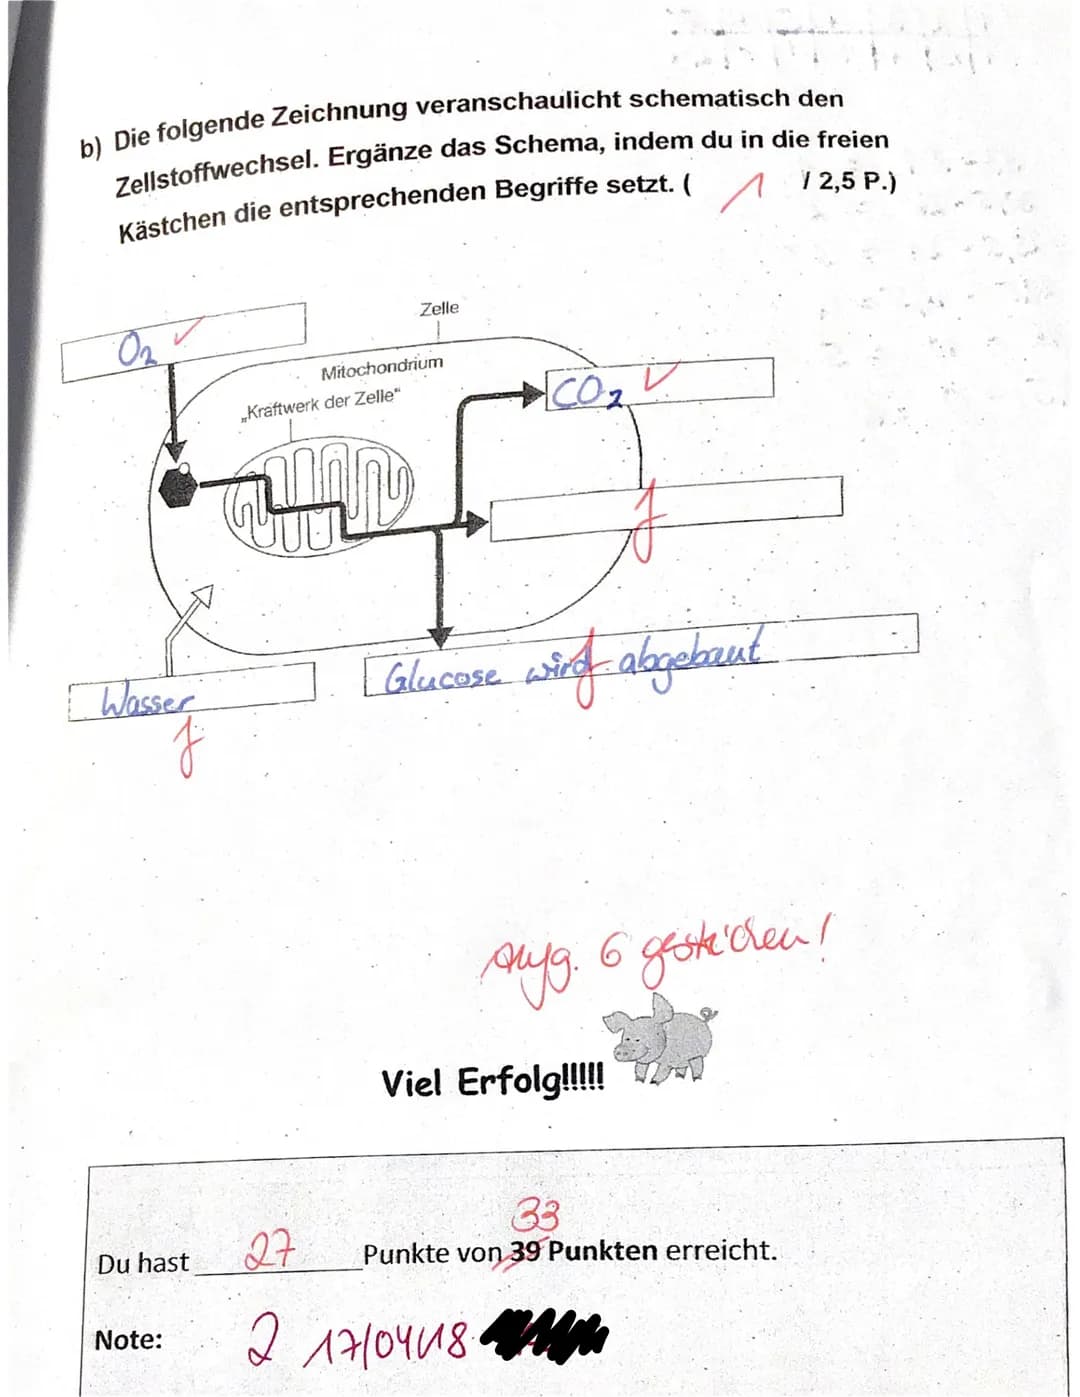 b) Die folgende Zeichnung veranschaulicht schematisch den
Zellstoffwechsel. Ergänze das Schema, indem du in die freien
Kästchen die entsprechenden Begriffe setzt. ( 1 / 2,5 P.)
Zelle
O₂ ✓
Mitochondrium
„Kraftwerk der Zelle"
CO₂ ✓
f
Glucose wird abgebaut f
Wasser
f
Aufg. 6 gestrichen!
Viel Erfolg!!!!!
33
Du hast 27 Punkte von 39 Punkten erreicht.
Note: 2 17/04/18